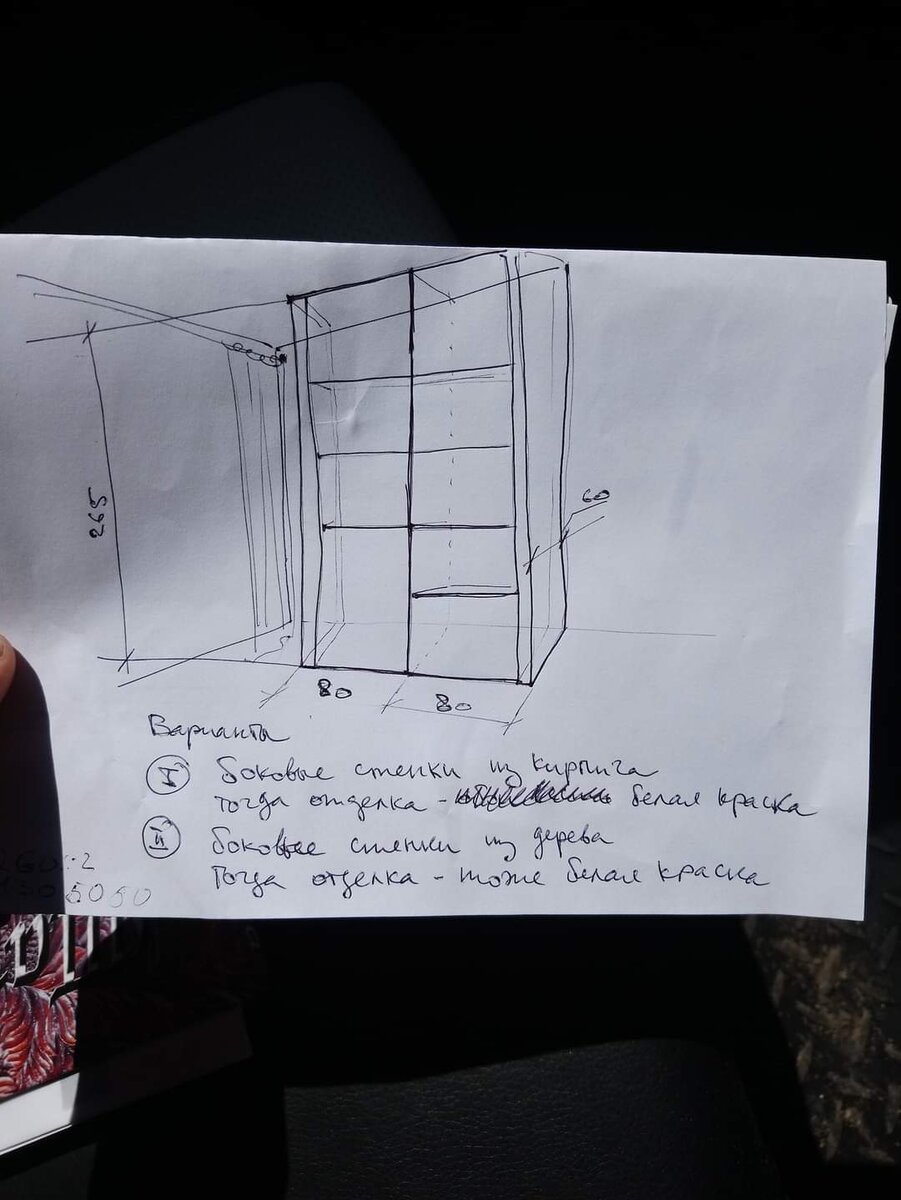 265
60
80
80
Варианты
I боковые стенки из кирпича
тогда отделка - белая краска
II боковые стенки из дерева
тогда отделка - тоже белая краска
5050